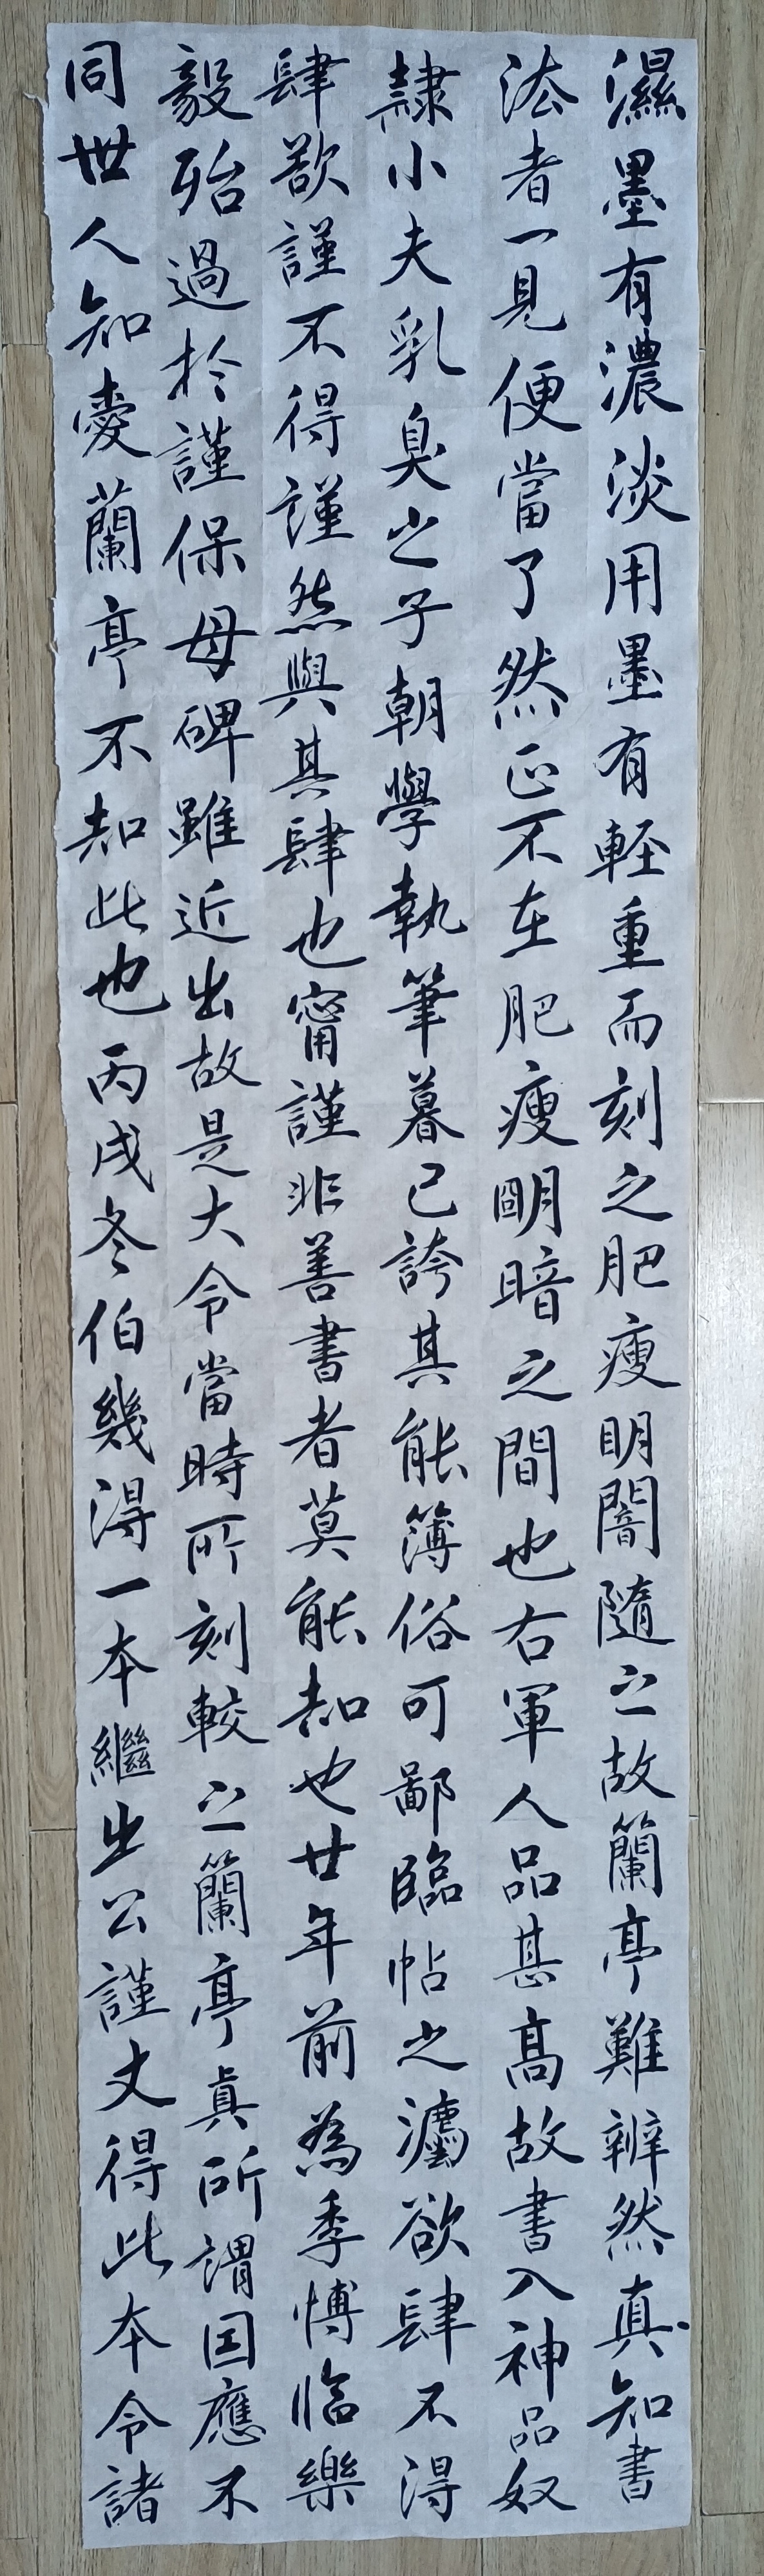 濕墨有濃淡用墨有輕重而刻之肥瘦明闇隨之故蘭亭難辨然真知書
法者一見便當了然正不在肥瘦明暗之間也右軍人品甚高故書入神品奴
隸小夫乳臭之子朝學執筆暮已誇其能簿俗可鄙臨帖之灋欲肆不得
肆欲謹不得謹然與其肆也甯謹非善書者莫能知也廿年前為季博臨樂
毅殆過於謹保母碑雖近出故是大令當時所刻較之蘭亭真所謂固應不
同世人知愛蘭亭不知此也丙戌冬伯幾得一本繼之公謹丈得此本令諸